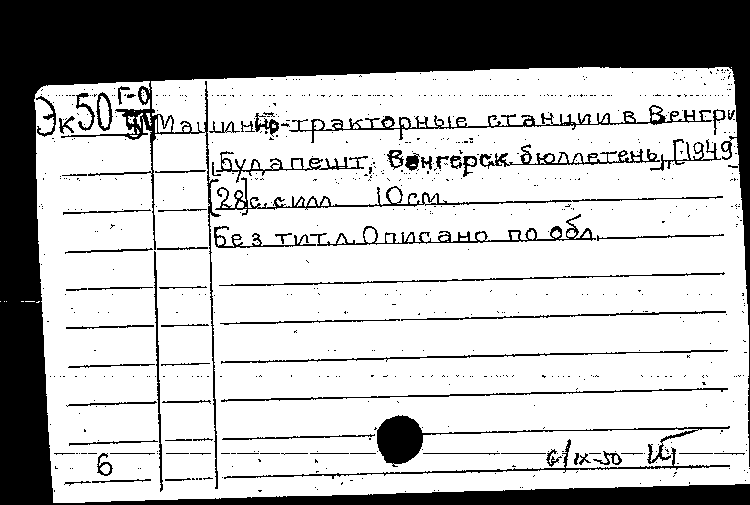 Эк50 Г-О
Машинно-тракторные станции в Венгри
[Будапешт, Венгерск. бюллетень, [1949]
[28] с. с илл. 10 см.
Без тит. л. Описано по обл.
6
6/IX-50